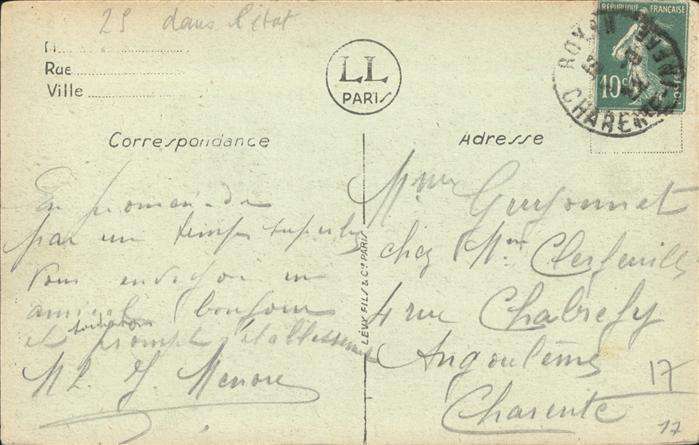 25 dans l'état
M
Rue
Ville
LL
PARIS
RÉPUBLIQUE FRANÇAISE
10c
ROYAN
CHARENTE
Correspondance
Adresse
En promenade
par un temps superbe
vous envoyons un
amical bonjour
toujours
et prompt établissement
M L J. Menore
LÉVY FILS & Cº PARIS
Mme Guyonnet
chez Mme
4 rue Chabrefy
Angoulême
Charente
17
17